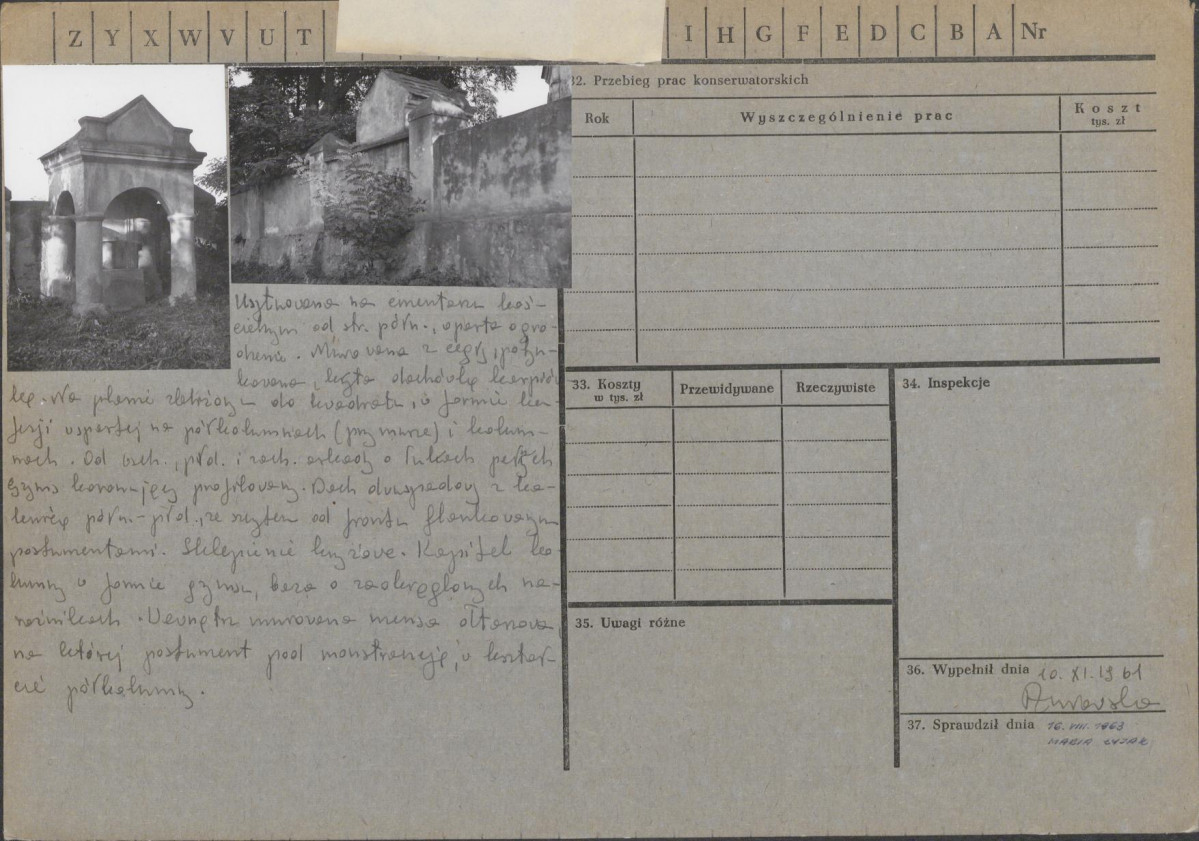 Z Y X W V U T I H G F E D C B A Nr
32. Przebieg prac konserwatorskich
Rok
Wyszczególnienie prac
Koszt
tys. zł
Usytuowana na cmentarzu koś-
cielnym od str. półn., oparta o ogro-
dzenie. Murowana z cegły, potyn-
kowana, kryta dachówką karpiów-
ką. Na planie zbliżonym do kwadratu, w formie
wspartej na półkolumnach (przy murze) i kolum-
nach. Od wsch., płd. i zach. arkady o łukach pełnych
Gzyms koronujący profilowany. Dach dwuspadowy z ka-
lenicą półn.-płd., ze szczytem od frontu flankowanym
postumentami. Sklepienie krzyżowe. Kapitel ko-
lumny w formie gzymsu, baza o zaokrąglonych na-
rożnikach. Wewnątrz murowana mensa ołtarzowa,
na której postument pod monstrancję, w kształ-
cie półkolumny.
33. Koszty
w tys. zł
Przewidywane
Rzeczywiste
34. Inspekcje
35. Uwagi różne
36. Wypełnił dnia 10. XI. 1961
37. Sprawdził dnia 16. VIII. 1963
MARIA